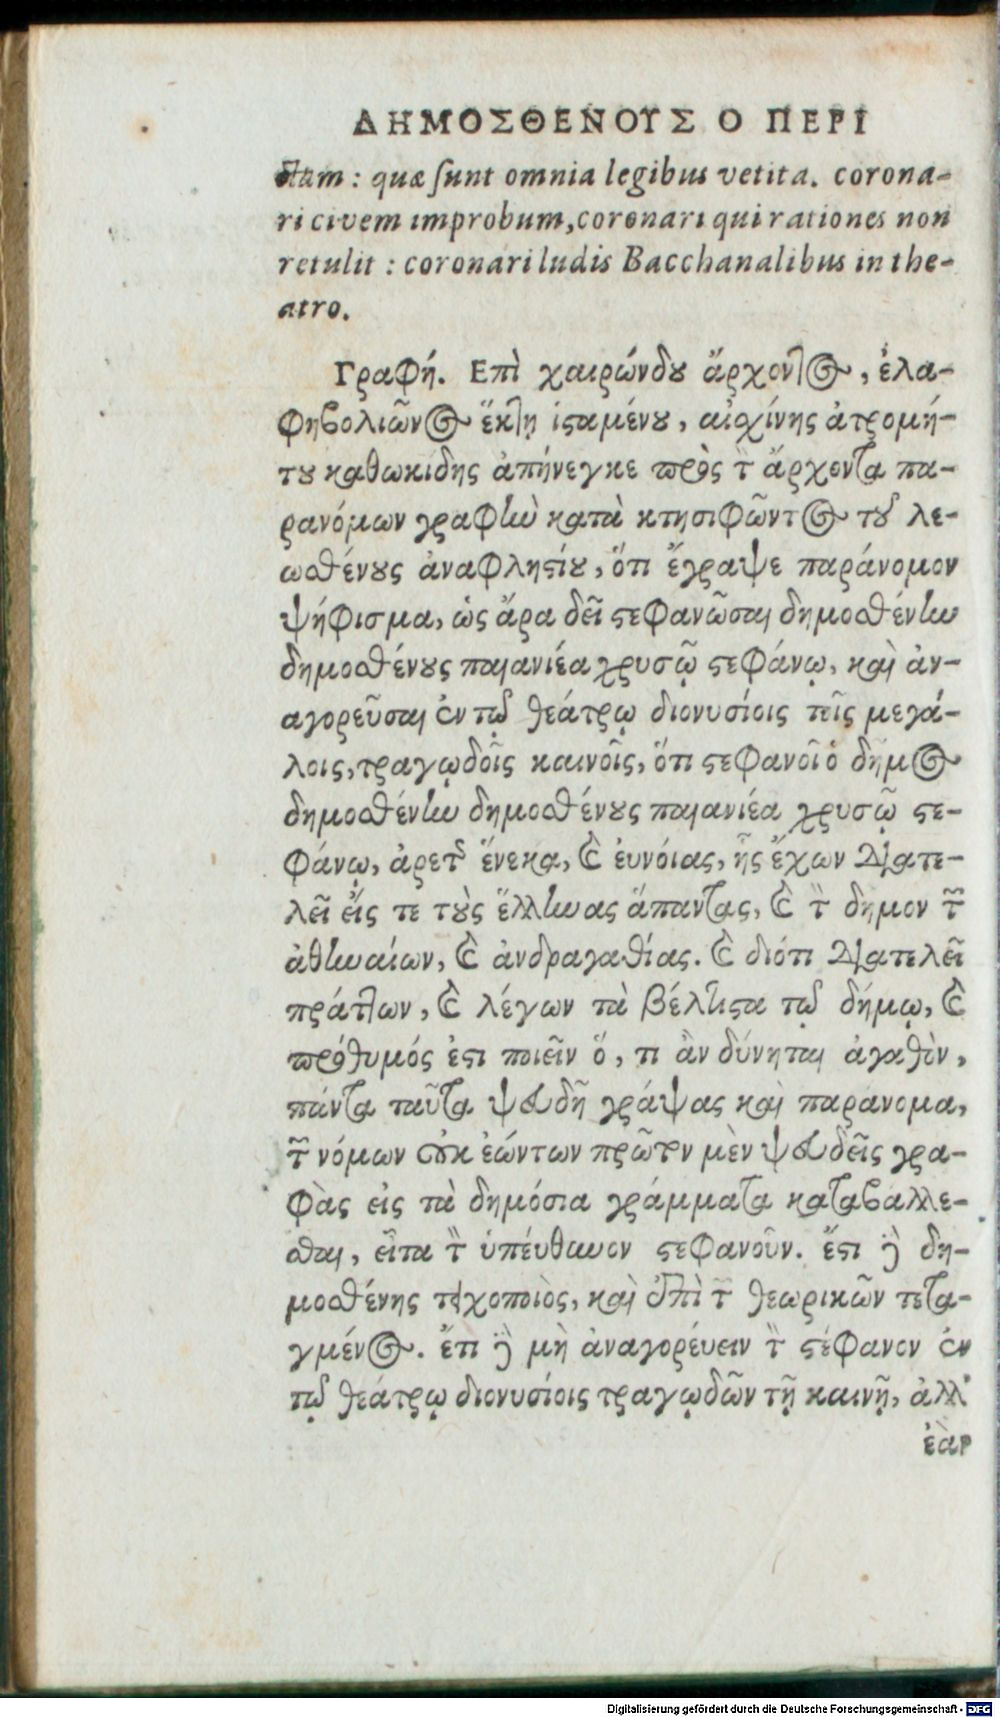 ΔΗΜΟΣΘΕΝΟΥΣ Ο ΠΕΡΙ
ctam : quæ ſunt omnia legibus vetita. corona-
ri civem improbum, coronari qui rationes non
retulit : coronari ludis Bacchanalibus in the-
atro.
Γραφή. Επὶ χαιρώνδου ἄρχοντος, ἐλα-
φηβολιῶνος ἕκτῃ ἱσταμένου, αἰσχίνης ἀτρομή-
του καθωκιδης ἀπήνεγκε πρὸς τὸν ἄρχοντα πα-
ρανόμων γραφὴν κατὰ κτησιφῶντος τοῦ λε-
ωσθένους ἀναφλυστίου, ὅτι ἔγραψε παράνομον
ψήφισμα, ὡς ἄρα δεῖ στεφανῶσαι δημοσθένην
δημοσθένους παιανιέα χρυσῷ στεφάνῳ, καὶ ἀν-
αγορεῦσαι ἐν τῷ θεάτρῳ διονυσίοις τοῖς μεγά-
λοις, τραγῳδοῖς καινοῖς, ὅτι στεφανοῖ ὁ δῆμος
δημοσθένην δημοσθένους παιανιέα χρυσῷ στε-
φάνῳ, ἀρετῆς ἕνεκα, καὶ ἐυνόιας, ἧς ἔχων διατε-
λεῖ εἴς τε τοὺς ἕλληνας ἅπαντας, καὶ τὸν δημον τῶν
ἀθηναίων, καὶ ἀνδραγαθίας. καὶ διότι διατελεῖ
πράττων, καὶ λέγων τὰ βέλτιστα τῷ δήμῳ, καὶ
πρόθυμός ἐστι ποιεῖν ὅ, τι ἂν δύνηται ἀγαθὸν,
πάντα ταῦτα ψευδῆ γράψας καὶ παρανομα,
τῶν νόμων οὐκ ἐώντων πρῶτον μὲν ψευδεῖς γρα-
φὰς εἰς τὰ δημόσια γράμματα καταβαλλε-
σθαι, εἶτα τὸν ὑπέυθυνον στεφανοῦν. ἔστι δὲ δη-
μοσθένης τειχοποιὸς, καὶ ἐπὶ τῶν θεωρικῶν τετα-
γμένος. ἔτι δὲ μὴ ἀναγορέυειν τὸν στέφανον ἐν
τῷ θεάτρῳ διονυσίοις τραγῳδῶν τῇ καινῇ, ἀλλ'
ἐὰν
Digitalisierung gefördert durch die Deutsche Forschungsgemeinschaft - DFG